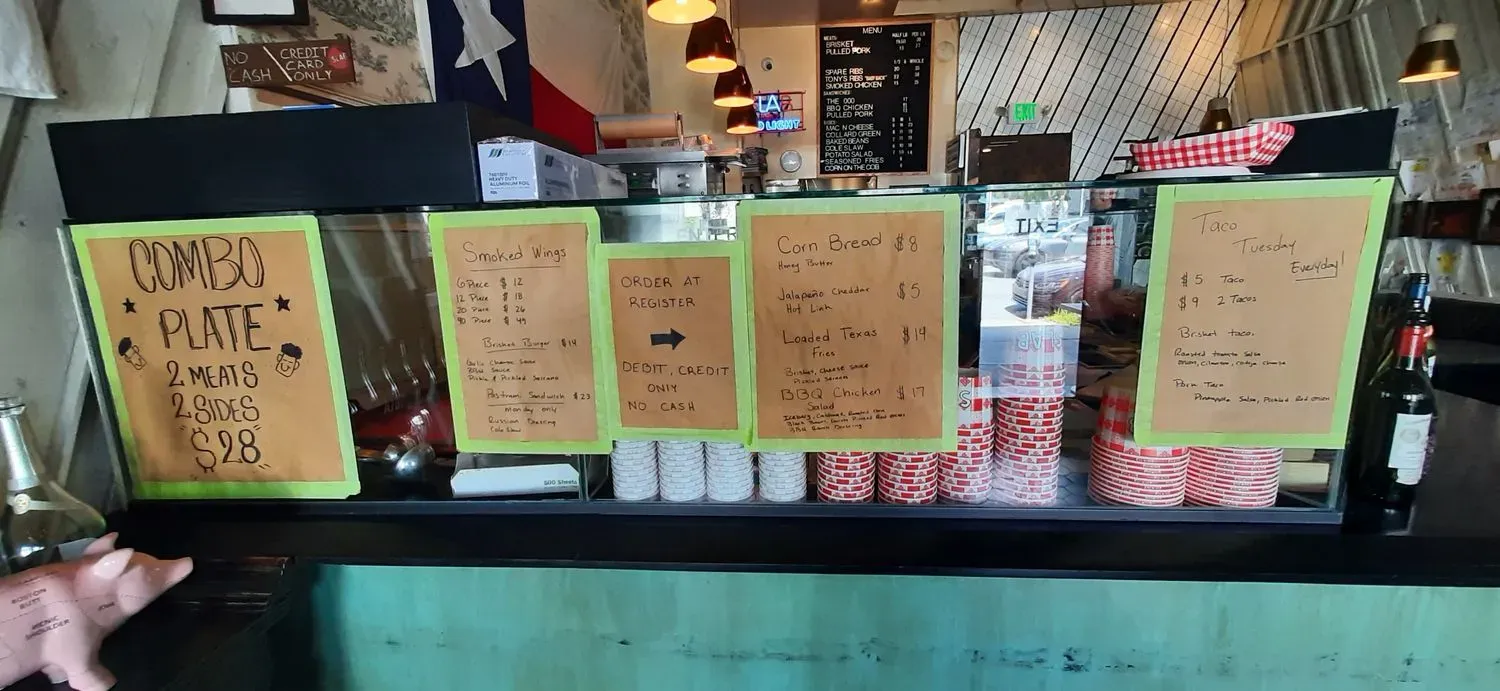 NO CASH
CREDIT CARD ONLY
MENU
HALF LB
PER LB
MEATS:
BRISKET
PULLED PORK
1/2 & WHOLE
SPARE RIBS
TONY'S RIBS "BABY BACK"
SMOKED CHICKEN
SANDWICHES:
THE 000
BBQ CHICKEN
PULLED PORK
SIDES:
MAC N CHEESE
COLLARD GREEN
BAKED BEANS
COLE SLAW
POTATO SALAD
SEASONED FRIES
CORN ON THE COB
LA
LIGHT
EXIT
HEAVY DUTY
ALUMINUM FOIL
COMBO
PLATE
2 MEATS
2 SIDES
"$28"
Smoked Wings
6 Piece $ 12
12 Piece $ 18
20 Piece $ 26
40 Piece $ 49
Brisket Burger $14
Garlic Cheese Sauce
BBQ Sauce
Pickle & Pickled Serrano
Pastrami Sandwich $23
Monday only
Russian Dressing
Cole Slaw
ORDER AT
REGISTER
DEBIT, CREDIT
ONLY
NO CASH
Corn Bread $8
Honey Butter
Jalapeño Cheddar $5
Hot Link
Loaded Texas $14
Fries
Brisket, cheese sauce
BBQ Chicken $17
Salad
BBQ Ranch Dressing
EXIT
Taco
Tuesday
Everyday!
$5 Taco
$9 2 Tacos
Brisket taco.
Roasted tomato Salsa
onion, cilantro, cotija cheese
Pork Taco
Pineapple Salsa, Pickled Red onion
500 Sheets
BOSTON
BUTT
PICNIC
SHOULDER